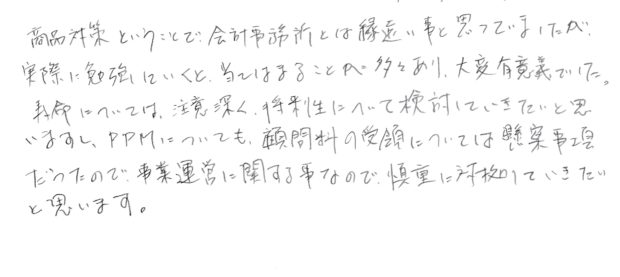 商品対策ということで、会計事務所とは縁遠い事と思っていましたが、
実際に勉強していくと、当てはまることが多々あり、大変有意義でした。
寿命については、注意深く、特別性について検討していきたいと思
いますし、PPMについても、顧問料の受領については懸案事項
だったので、事業運営に関する事なので、慎重に対処していきたい
と思います。